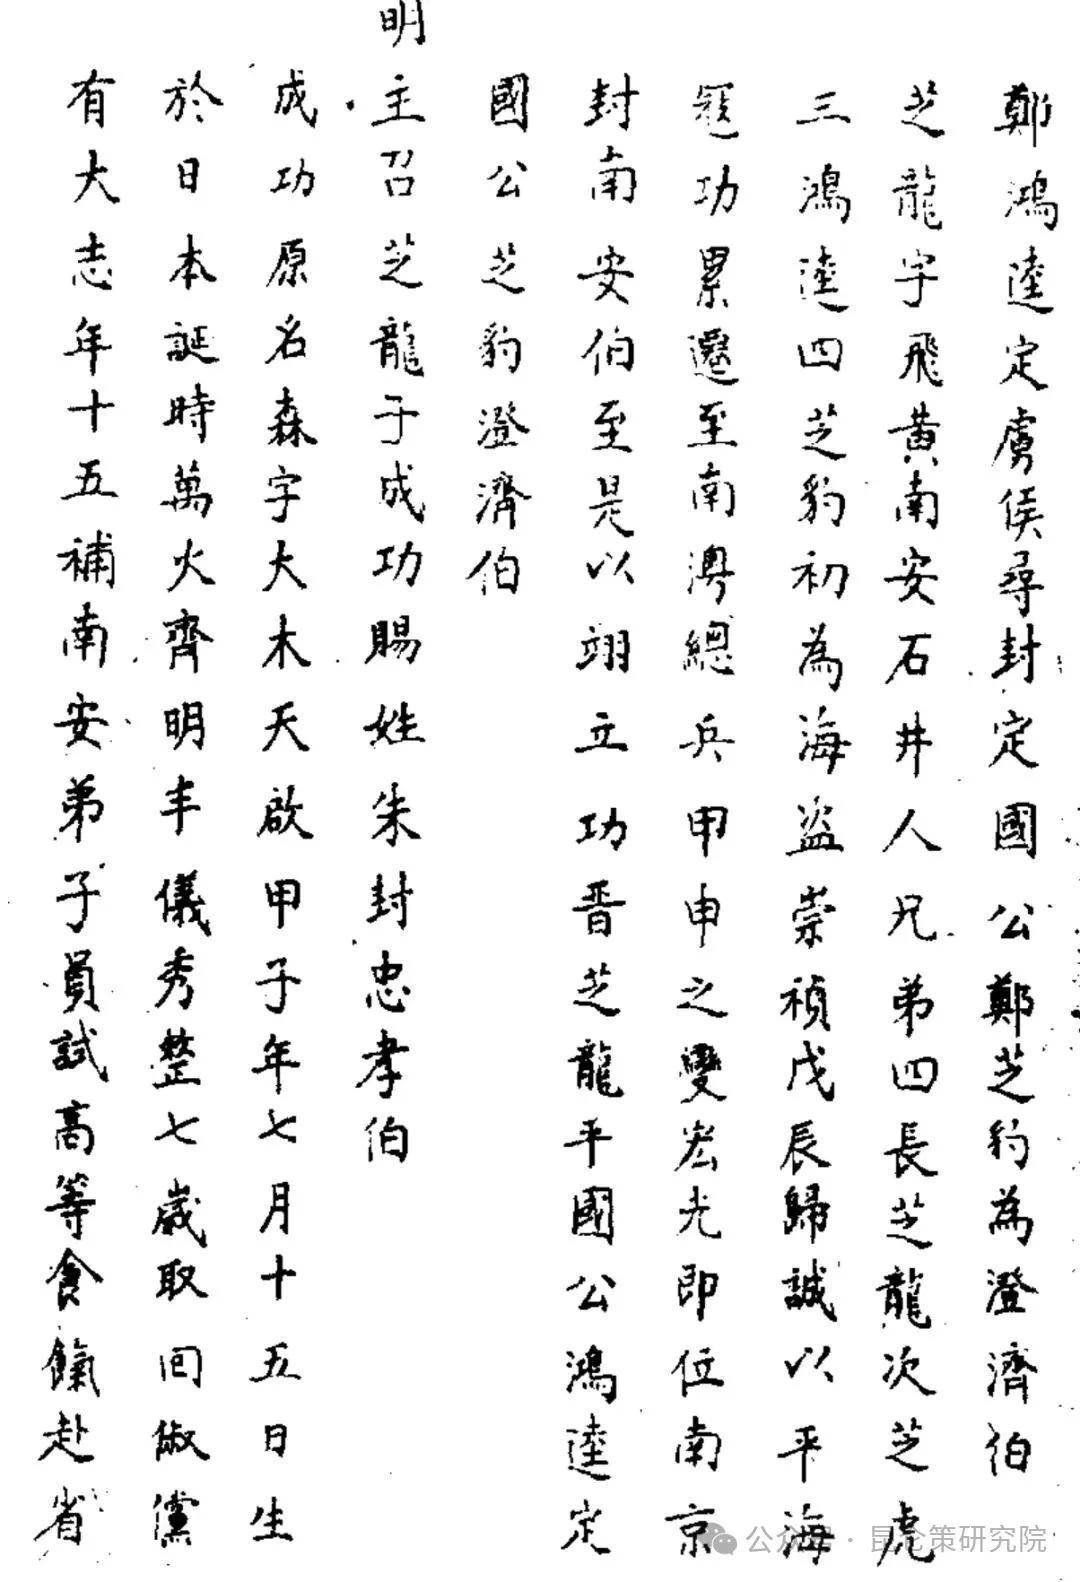 鄭鴻逵定虜侯尋封定國公鄭芝豹為澄濟伯
芝龍字飛黃南安石井人兄弟四長芝龍次芝虎
三鴻逵四芝豹初為海盜崇禎戊辰歸誠以平海
寇功累遷至南澳總兵甲申之變宏光即位南京
封南安伯至是以翊立功晋芝龍平國公鴻逵定
國公芝豹澄濟伯
明主召芝龍子成功賜姓朱封忠孝伯
成功原名森字大木天啟甲子年七月十五日生
於日本誕時萬火齊明丰儀秀整七歲取回俶儻
有大志年十五補南安弟子員試高等食餼赴省
公众号·昆仑策研究院